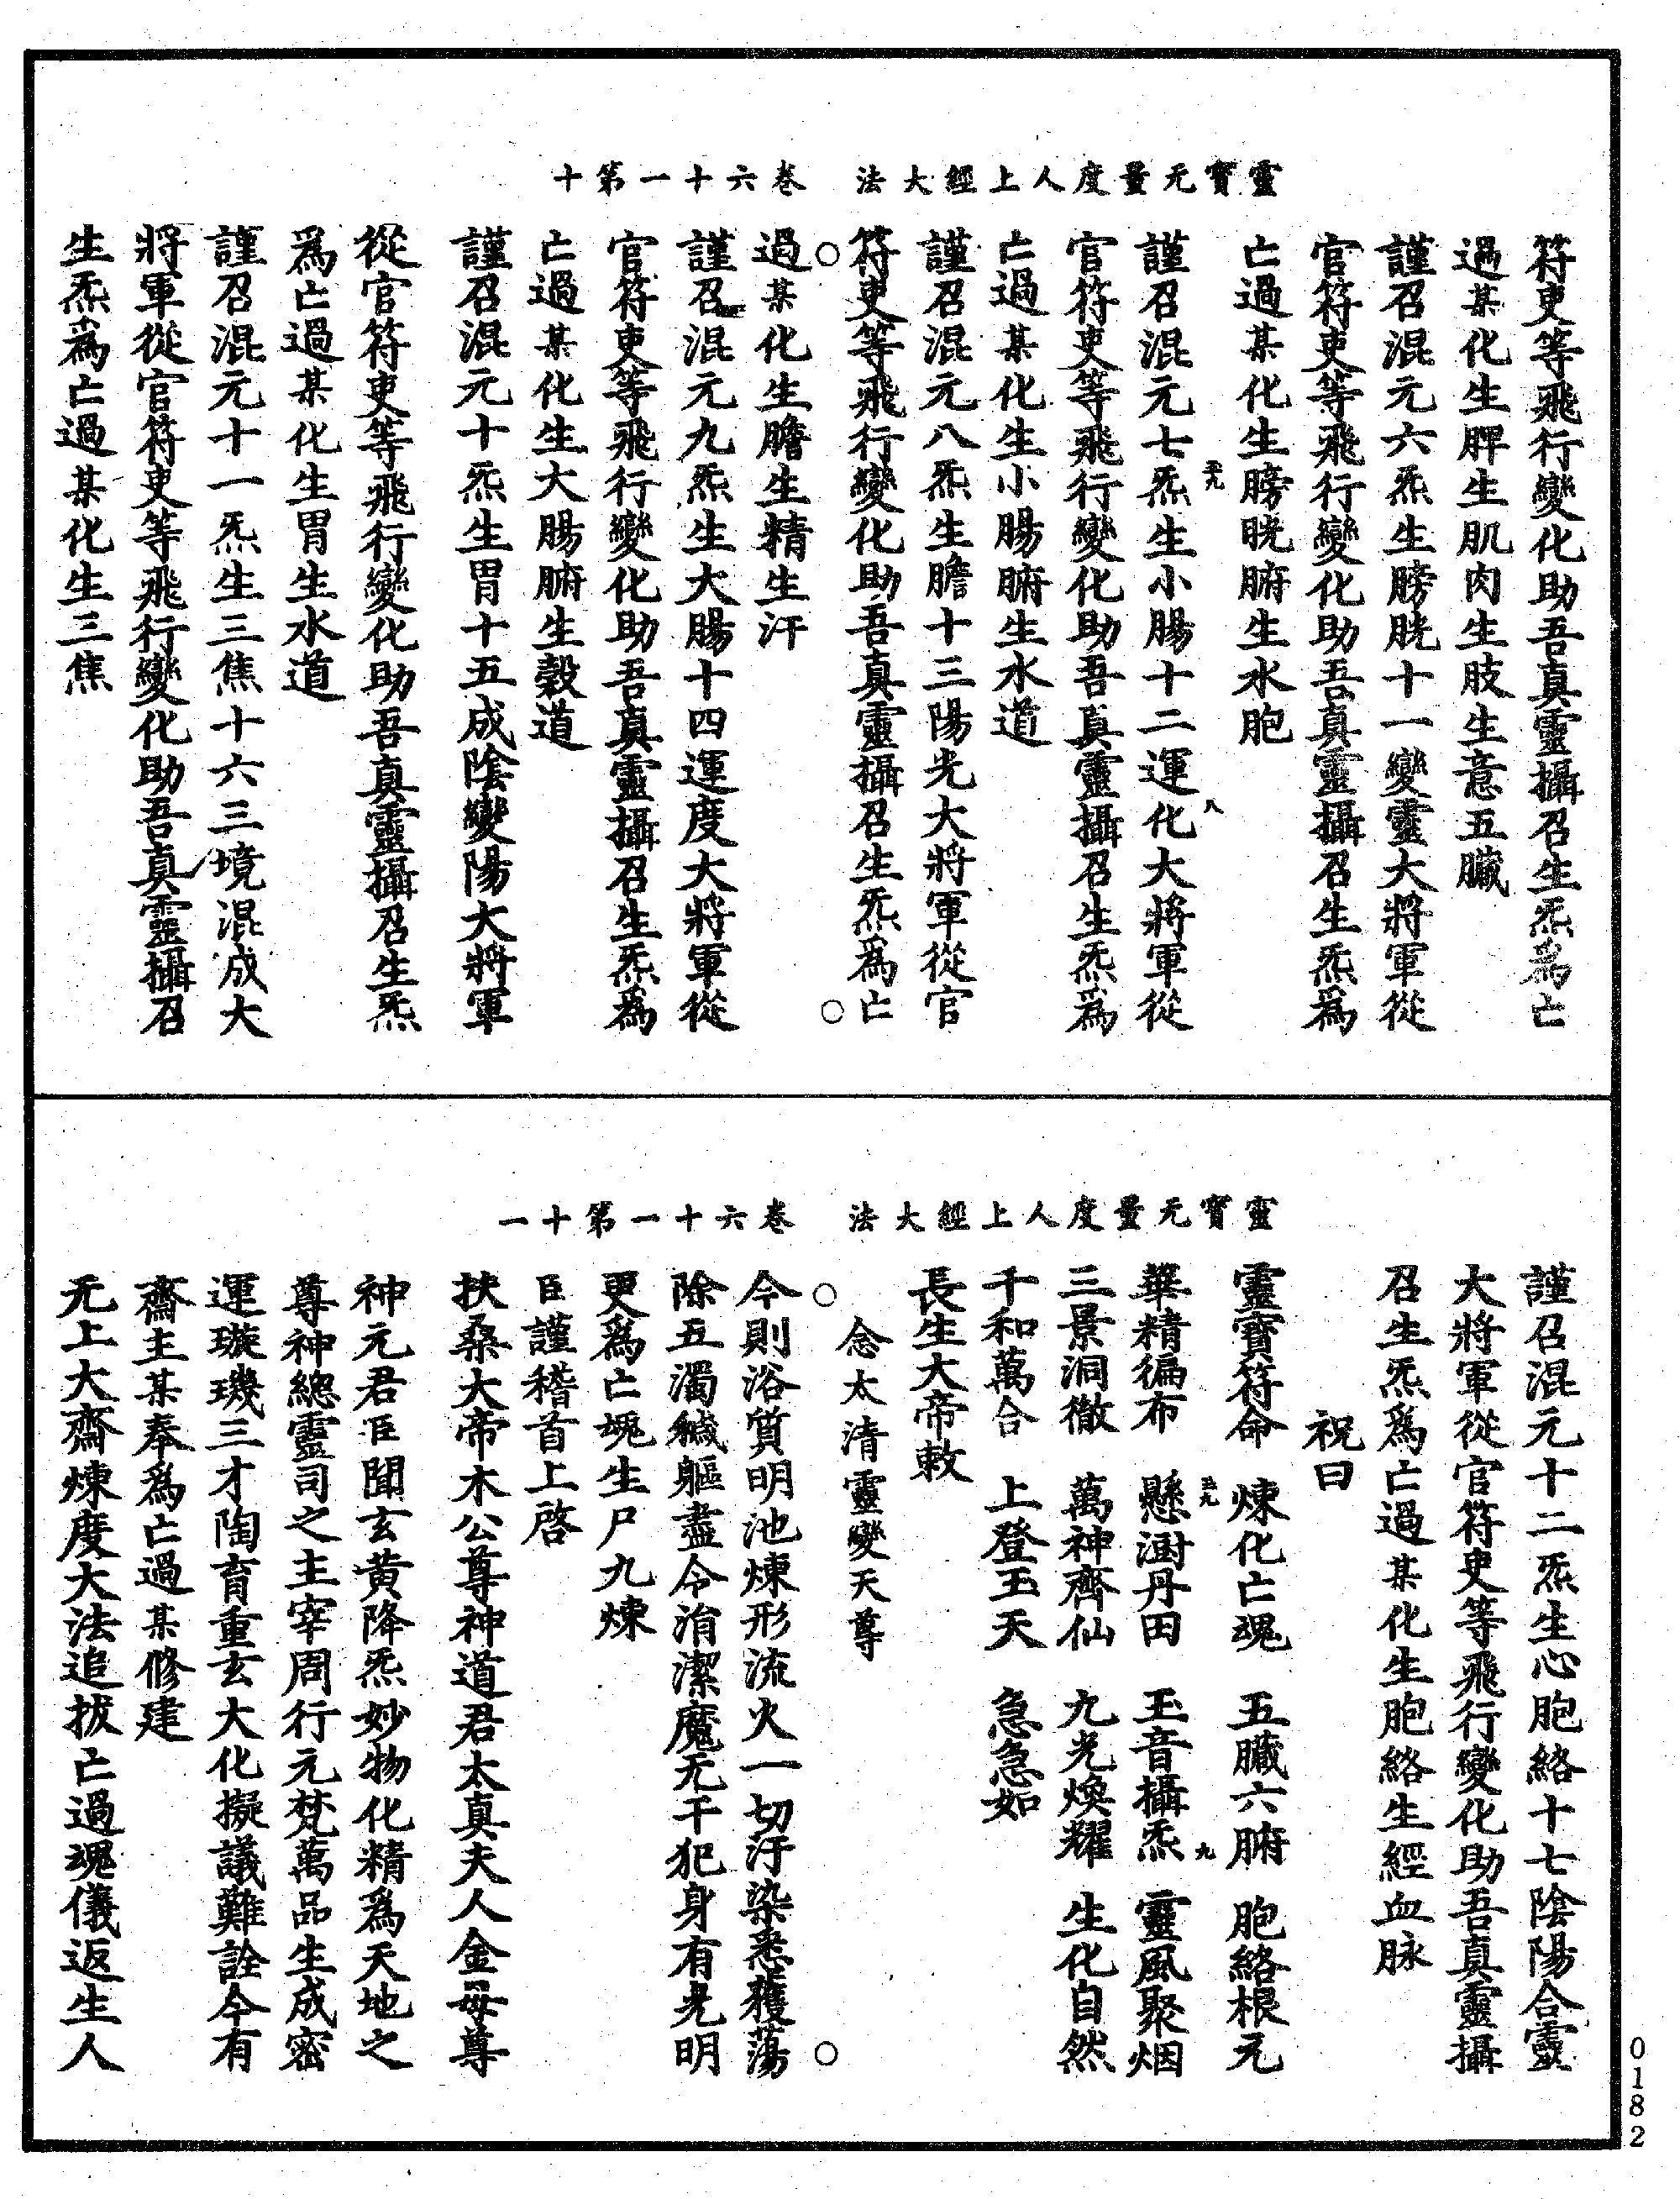 靈寶无量度人上經大法　卷六十一第十
符吏等飛行變化助吾真靈攝召生炁爲亡
過某化生脾生肌肉生肢生意五臟
謹召混元六炁生膀胱十一變靈大將軍從
官符吏等飛行變化助吾真靈攝召生炁爲
亡過某化生膀胱腑生水胞
謹召混元七炁生小腸十二運化大將軍從
官符吏等飛行變化助吾真靈攝召生炁爲
亡過某化生小腸腑生水道
謹召混元八炁生膽十三陽光大將軍從官
符吏等飛行變化助吾真靈攝召生炁爲亡
過某化生膽生精生汗
謹召混元九炁生大腸十四運度大將軍從
官符吏等飛行變化助吾真靈攝召生炁爲
亡過某化生大腸腑生榖道
謹召混元十炁生胃十五成陰變陽大將軍
從官符吏等飛行變化助吾真靈攝召生炁
爲亡過某化生胃生水道
謹召混元十一炁生三焦十六三境混成大
將軍從官符吏等飛行變化助吾真靈攝召
生炁爲亡過某化生三焦
靈寶无量度人上經大法　卷六十一第十一
謹召混元十二炁生心胞絡十七陰陽合靈
大將軍從官符吏等飛行變化助吾真靈攝
召生炁爲亡過某化生胞絡生經血脉
祝曰
靈寶符命　煉化亡魂　五臟六腑　胞絡根元
華精徧布　懸澍丹田　玉音攝炁　靈風聚烟
三景洞徹　萬神齊仙　九光煥耀　生化自然
千和萬合　上登玉天　急急如
長生大帝敕
念太清靈變天尊
今則浴質明池煉形流火一切汙染悉獲蕩
除五濁穢軀盡令消潔魔无干犯身有光明
更爲亡魂生尸九煉
臣謹稽首上啓
扶桑大帝木公尊神道君太真夫人金母尊
神元君臣聞玄黄降炁妙物化精爲天地之
尊神總靈司之主宰周行元梵萬品生成密
運璇璣三才陶育重玄大化擬議難詮今有
齋主某奉爲亡過某修建
无上大齋煉度大法追拔亡過魂儀返生人
五九
八
五九
九
0182